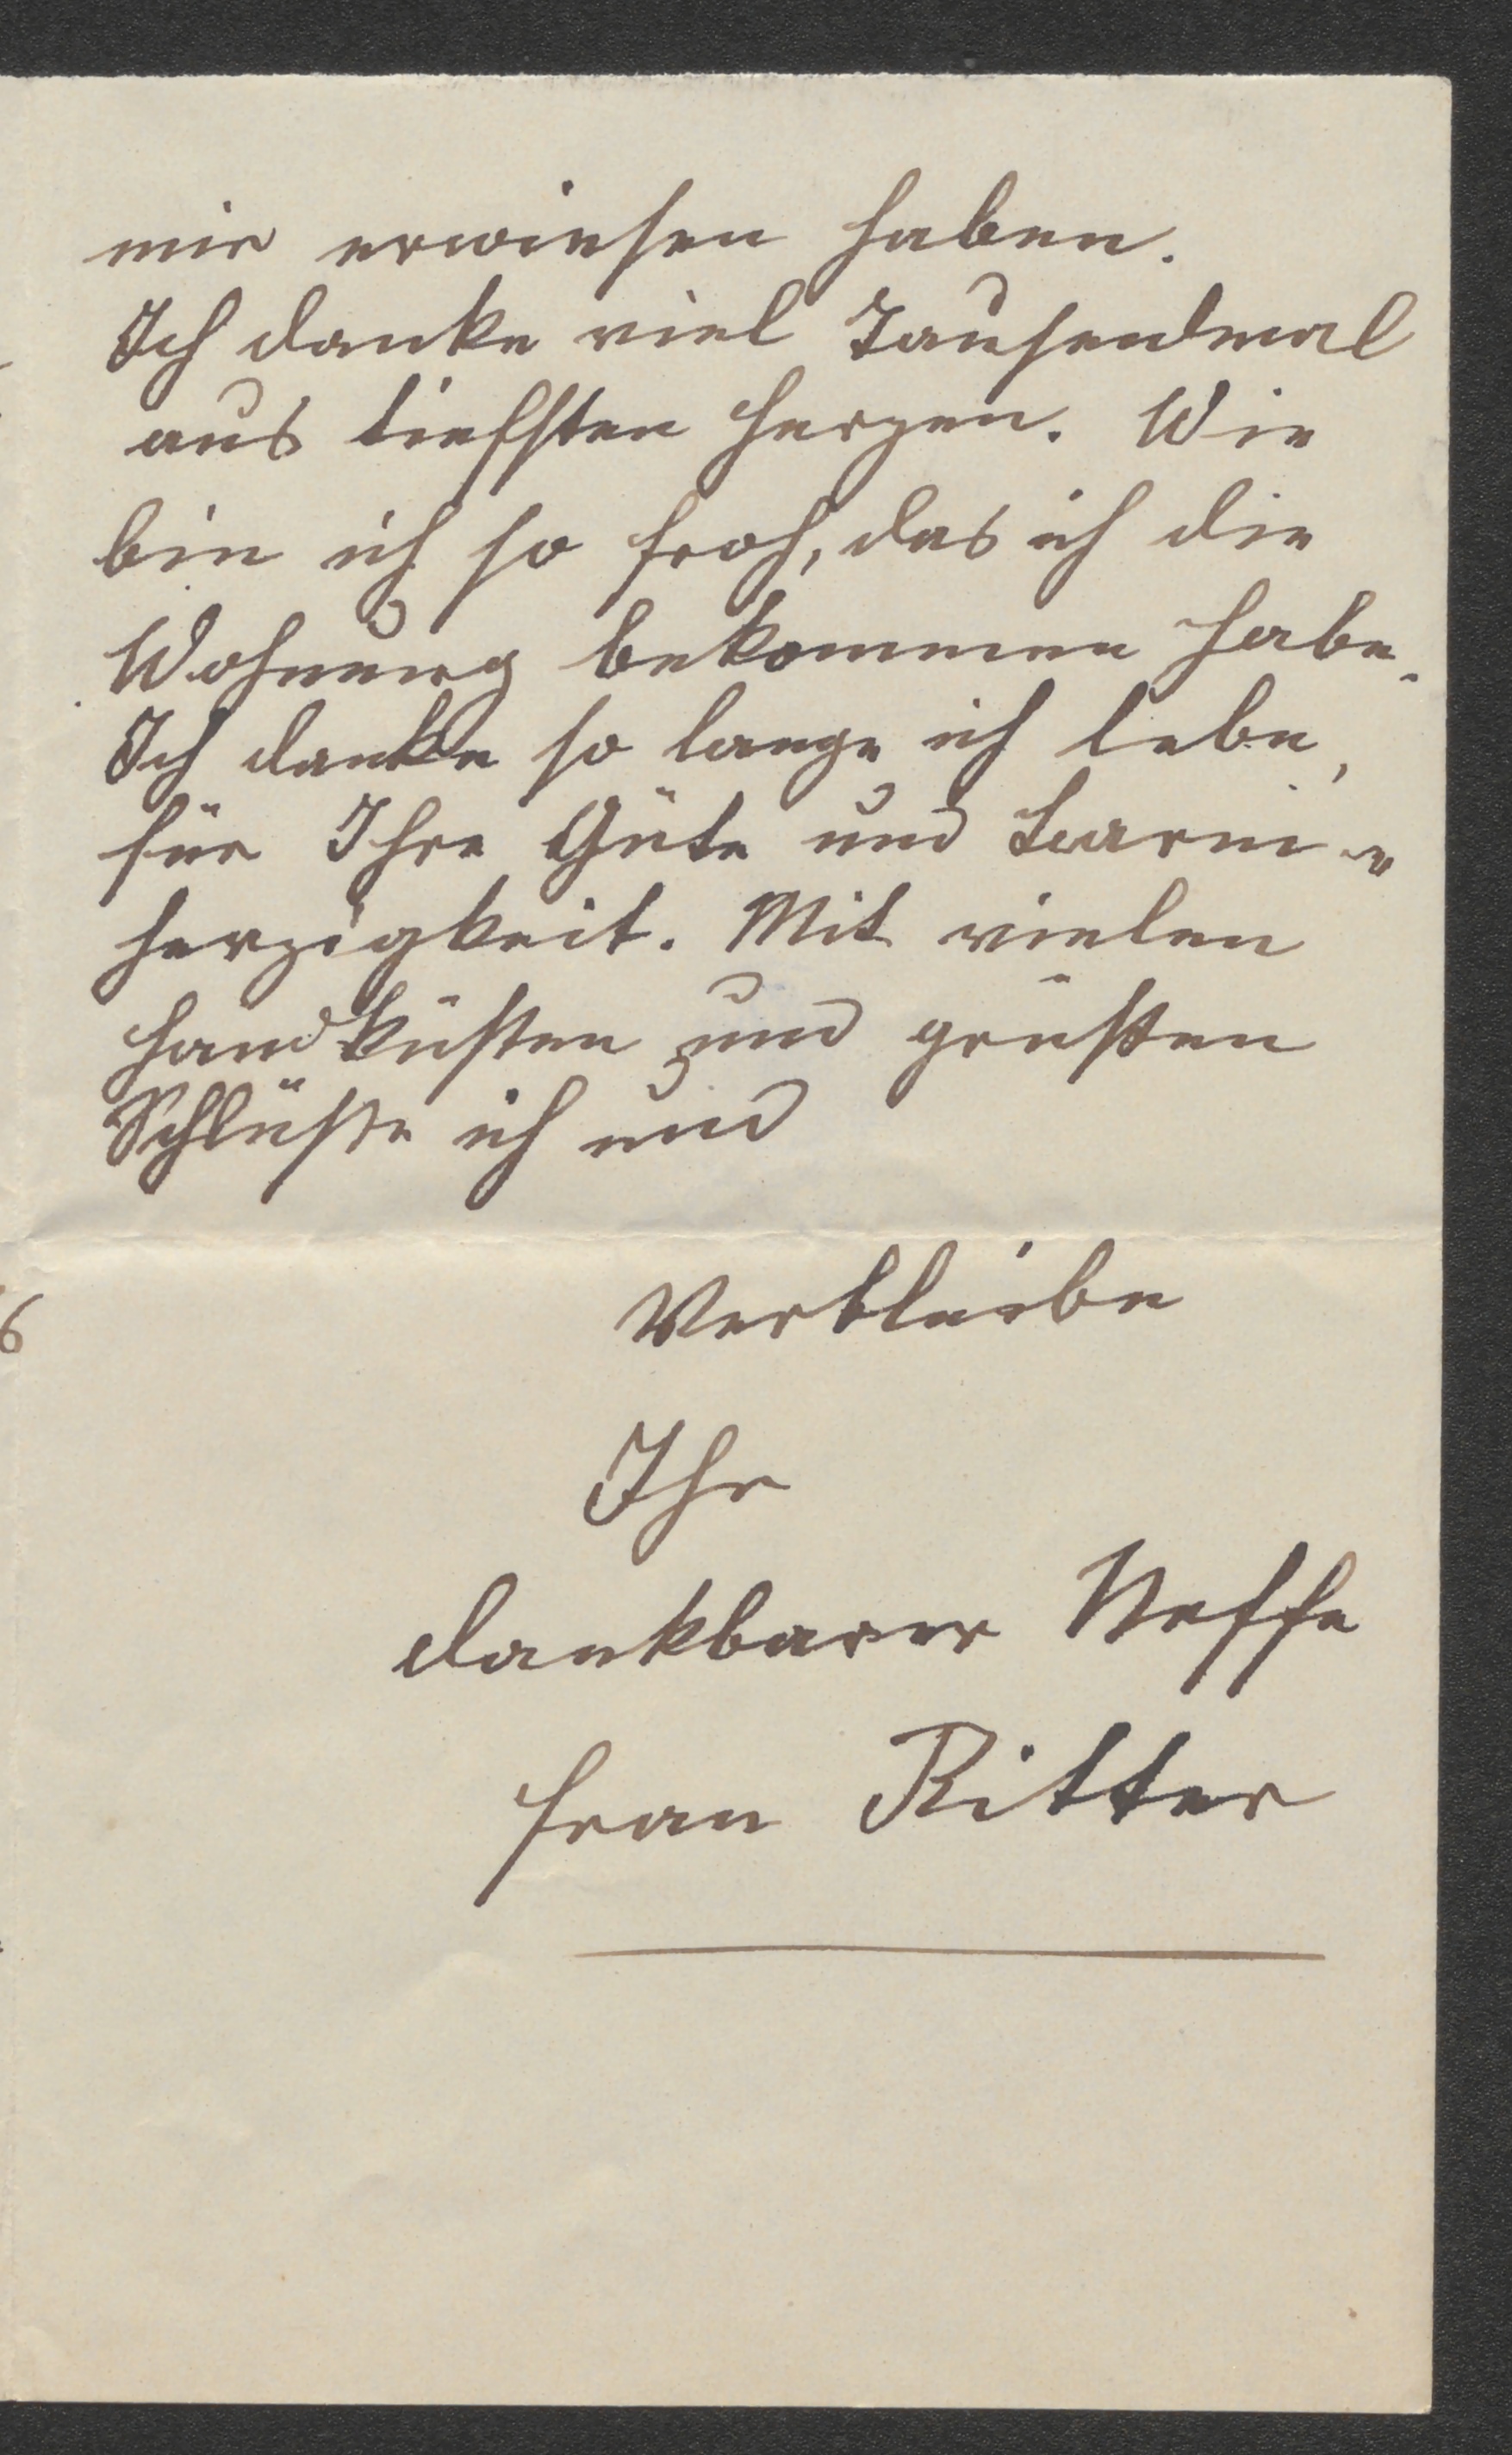 mir erwiesen haben.
Ich danke viel Tausendmal
aus tiefsten Herzen. Wie
bin ich so froh, das ich die
Wohnung bekommen habe.
Ich danke so lange ich lebe,
für Ihre Güte und barm-
herzigkeit. Mit vielen
handküssen und grüssen
Schlüsse ich und
Verbleibe
Ihr
dankbarer Neffe
Fran Ritter